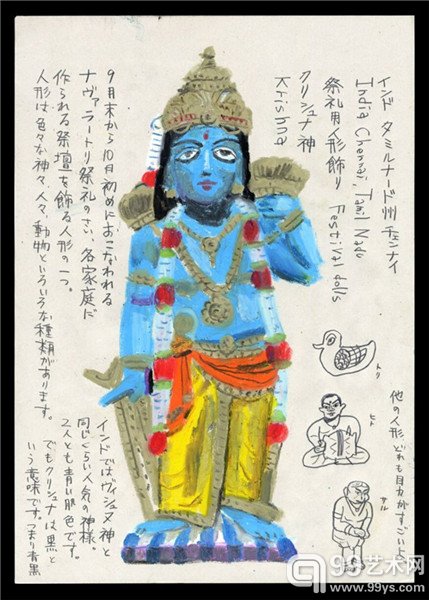 インド タミルナード州 チェンナイ
India Chennai, Tamil Nadu
祭礼用人形飾り Festival dolls
クリシュナ神
Krishna
9月末から10月初めにおこなわれる
ナヴァラートリ祭礼のさい、各家庭に
作られる祭壇を飾る人形の一つ。
人形は色々な神々、人々、動物といろいろな種類があります。
インドではヴィシュヌ神と
同じくらい人気の神様。
2人とも青い肌色です。
でもクリシュナは黒と
いう意味です。つまり青黒
他の人形 どれも目力がすごいよ
トリ
ヒト
サル
99艺术网
www.99ys.com